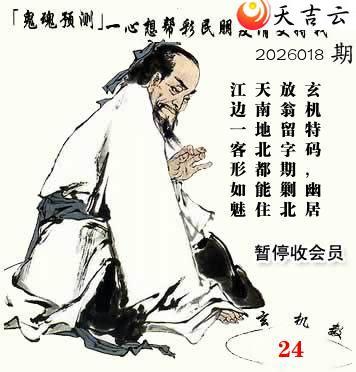 天吉云
「鬼魂预测」一心想帮彩民朋
2026018 期
玄机特码，幽居
放翁留字期剩北
天南地北都能住
江边一客形如魅
暂停收会员
玄机
24